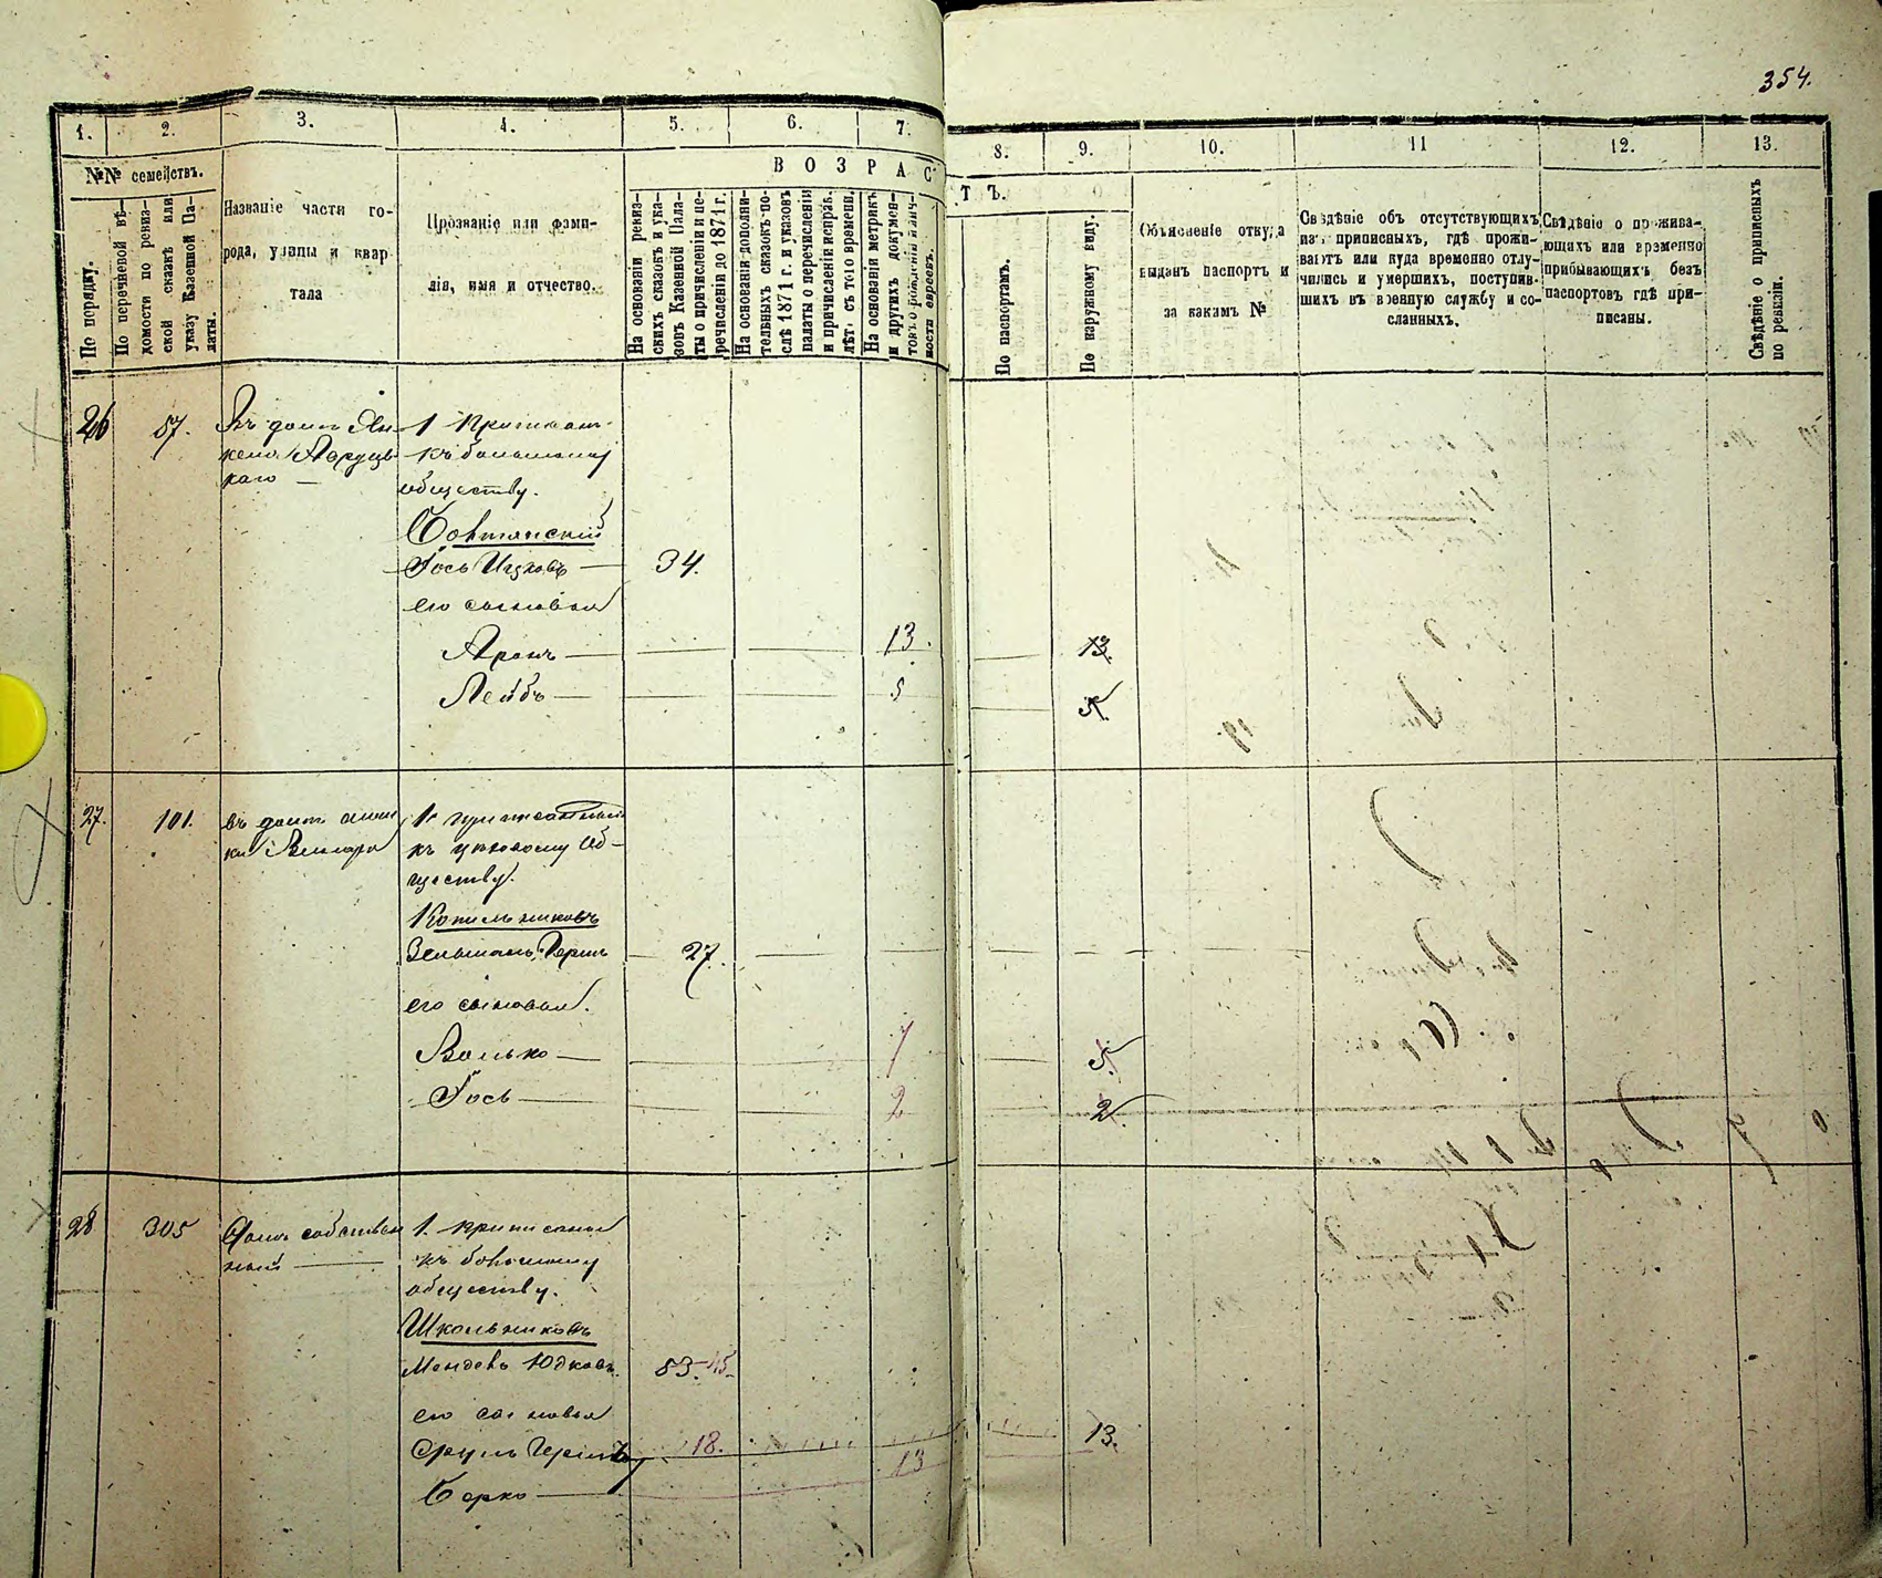 354.
1.
2.
3.
4.
5.
6.
7.
8.
9.
10.
11
12.
13.
№№ семействъ.
По порядку.
По перечневой вѣ-
домости по ревиз-
ской сказкѣ или
указу Казенной Па-
латы.
Названіе части го-
рода, улицы и квар
тала
Прозваніе или фами-
лія, имя и отчество.
ВОЗРАСТЪ.
На основаніи ревиз-
скихъ сказокъ и ука-
зовъ Казенной Пала-
ты о причисленіи и пе-
речисленіи до 1871 г.
На основаніи дополни-
тельныхъ сказокъ по-
слѣ 1871 г. и указовъ
палаты о перечисленіи
и причисленіи исправ.
лѣтъ съ того времени.
На основаніи метрик.
и другихъ докумен-
товъ о рожденіи
ности евреевъ.
По паспортамъ.
По наружному виду.
Объясненіе откуда
выданъ паспортъ и
за какимъ №
Свѣдѣніе объ отсутствующихъ
изъ приписныхъ, гдѣ прожи-
ваютъ или куда временно отлу-
чились и умершихъ, поступив-
шихъ въ военную службу и со-
сланныхъ.
Свѣдѣніе о прожива-
ющихъ или временно
прибывающихъ безъ
паспортовъ гдѣ при-
писаны.
Свѣдѣніе о приписныхъ
по ревизіи.
26
57.
Въ домѣ Ян-
келя
каго
1
къ большому
обществу.
Іось Ицковъ
34.
его сыновья
Аронъ
13.
13.
Лейбъ
5
5.
27.
101.
въ домѣ
1.
къ цеховому об-
ществу.
Копильниковъ
Зельманъ
27.
его сыновья.
Волько
7
5.
Іось
2
2.
28
305
Домъ собствен
ный
1. приписаны
къ большому
обществу.
Школьниковъ
Мендель Юдковъ
53. 45
его сыновья
Сруль
18.
13.
Берко
13